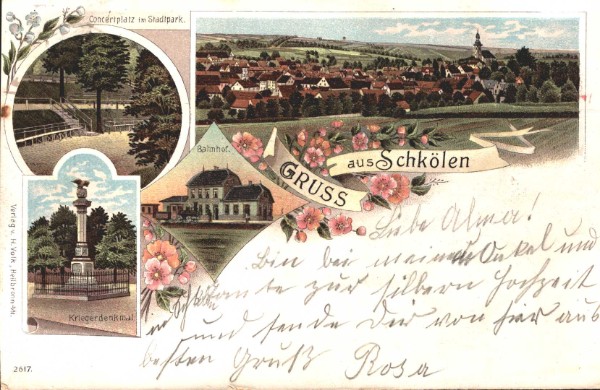 Concertplatz im Stadtpark.
Bahnhof.
GRUSS
aus Schkölen
Kriegerdenkmal
2817.
Liebe Alma!
Bin bei meinem Onkel und
Tante zur silbern Hochzeit
und sende Dir von hier aus
besten Gruß Rosa